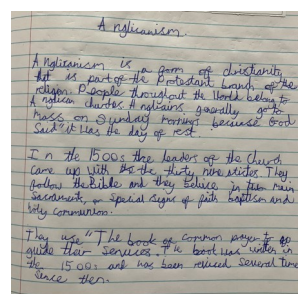 Anglicanism
Anglicanism is a form of christianity
that is part of the Protestant branch of the
religion. People throughout the World belong to
Anglican churches. Anglicains generally go to
mass on Sunday morning because God
Said it Was the day of rest.
In the 1500s three leaders of the Church
came up With the thirty nine articles. They
follow the Bible and they belive in two main
Sacraments, or Special signs of faith baptism and
holy communion.
They use "The book of common prayer to
guide their Services. The book was writen in
the 1500s and has been revised Several time
Since then.